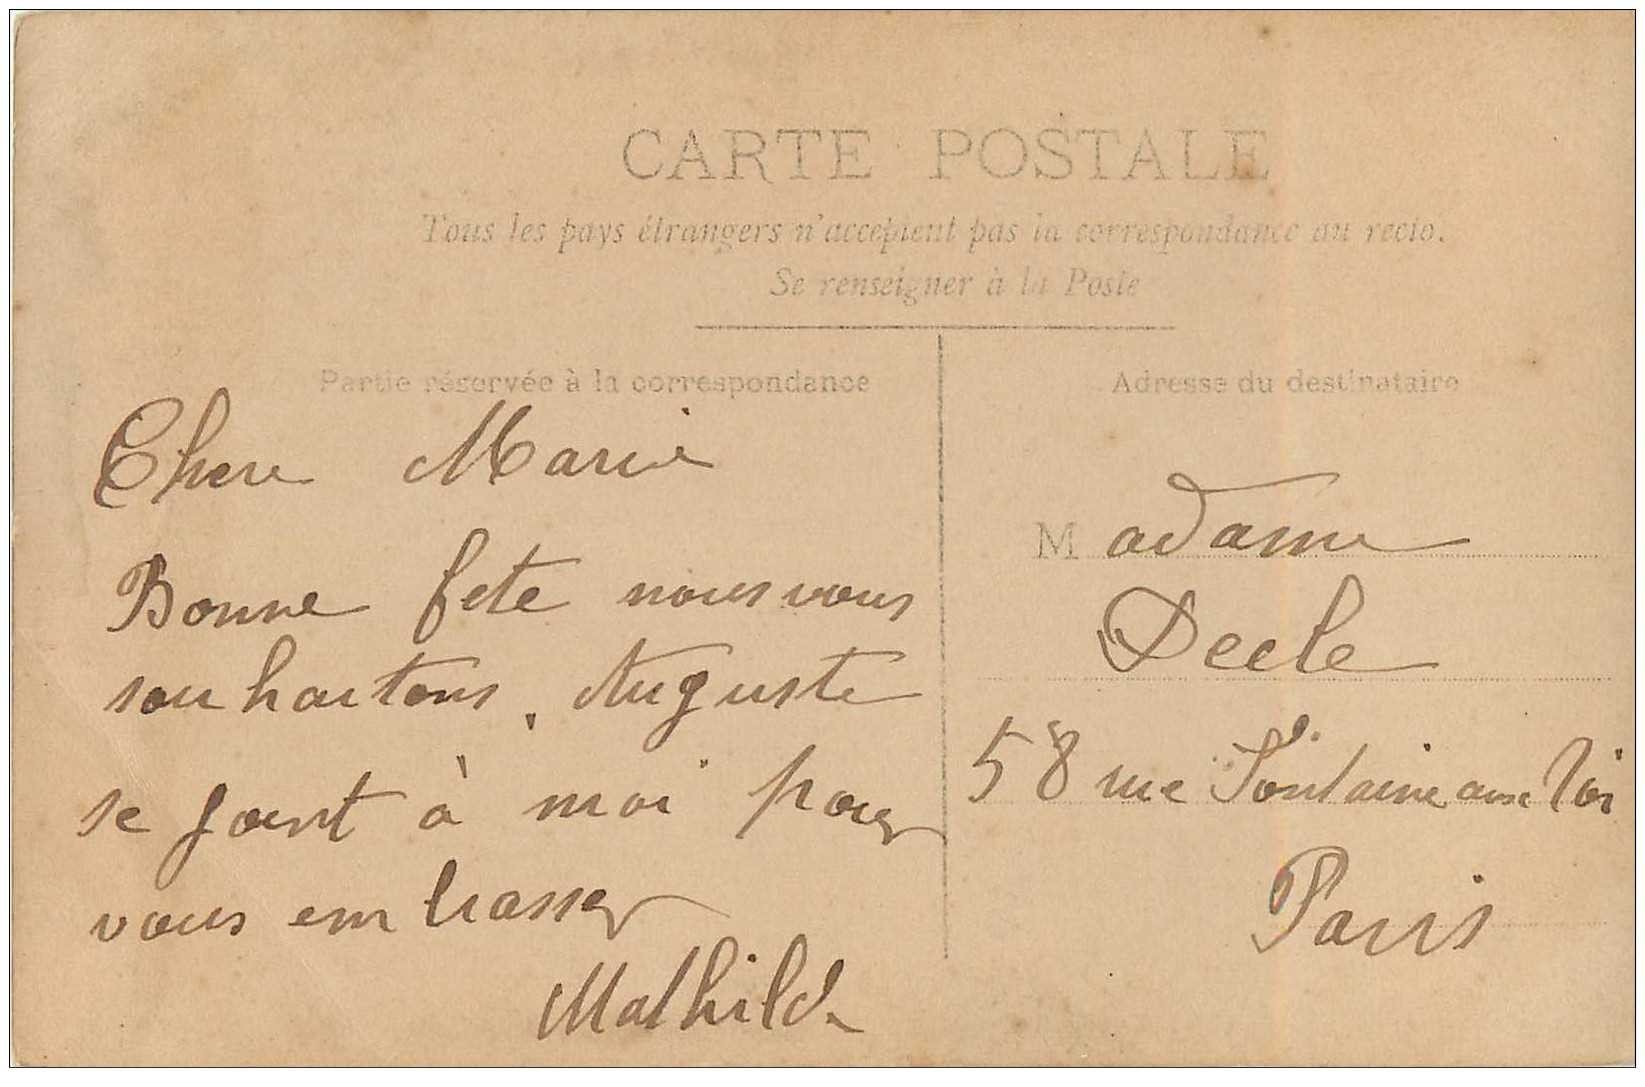 CARTE POSTALE
Tous les pays étrangers n'acceptent pas la correspondance au recto.
Se renseigner à la Poste
Partie réservée à la correspondance
Chere Marie
Bonne fete nous vous
souhaitons. Auguste
se joint à moi pour
vous embrasser
Mathilde
Adresse du destinataire
Madame
Decle
58 rue Fontaine au Roi
Paris